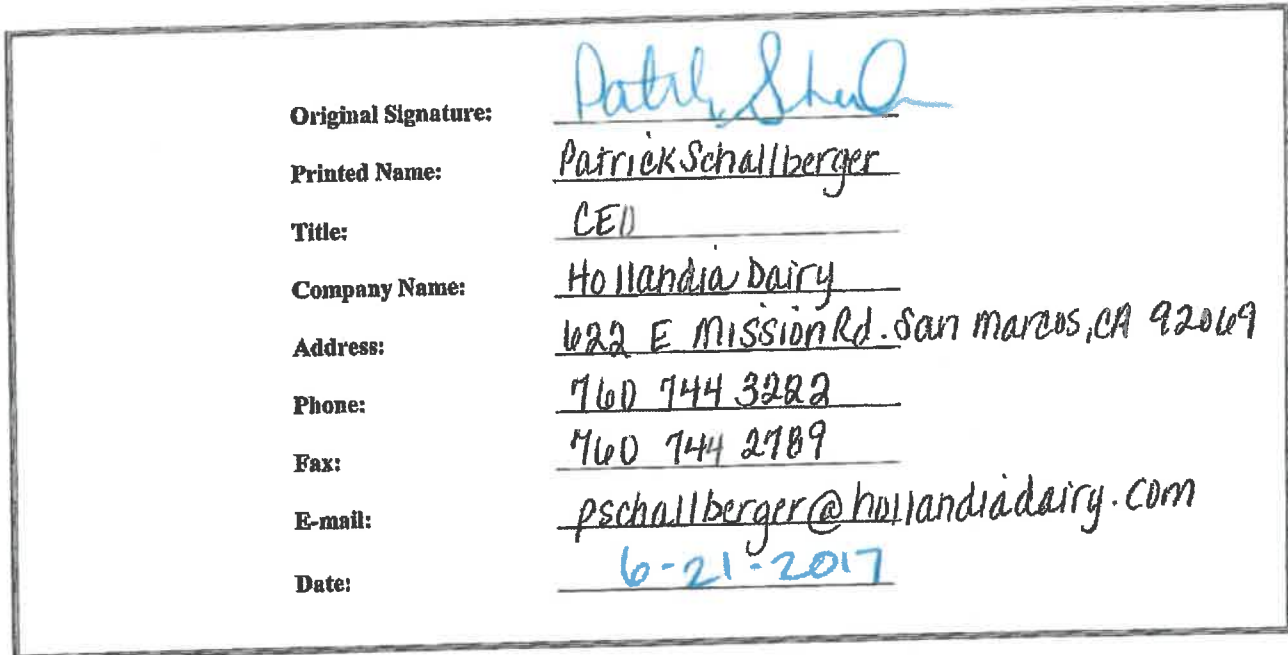 Original Signature:
Printed Name: Patrick Schallberger
Title: CEO
Company Name: Hollandia Dairy
Address: 622 E Mission Rd. San Marcos, CA 92069
Phone: 760 744 3222
Fax: 760 744 2789
E-mail: pschallberger@hollandiadairy.com
Date: 6-21-2017